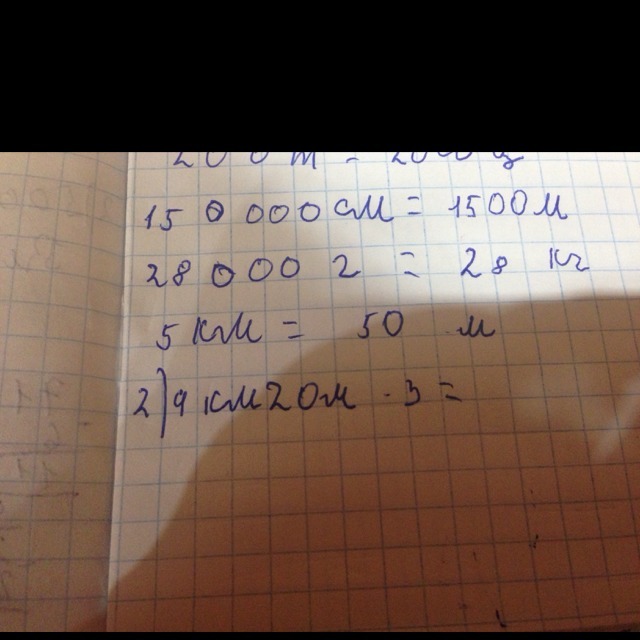 200 т = 2000 ц
150 000 см = 1500 м
28 000 г = 28 кг
5 км = 50 м
2) 9 км 20 м · 3 =